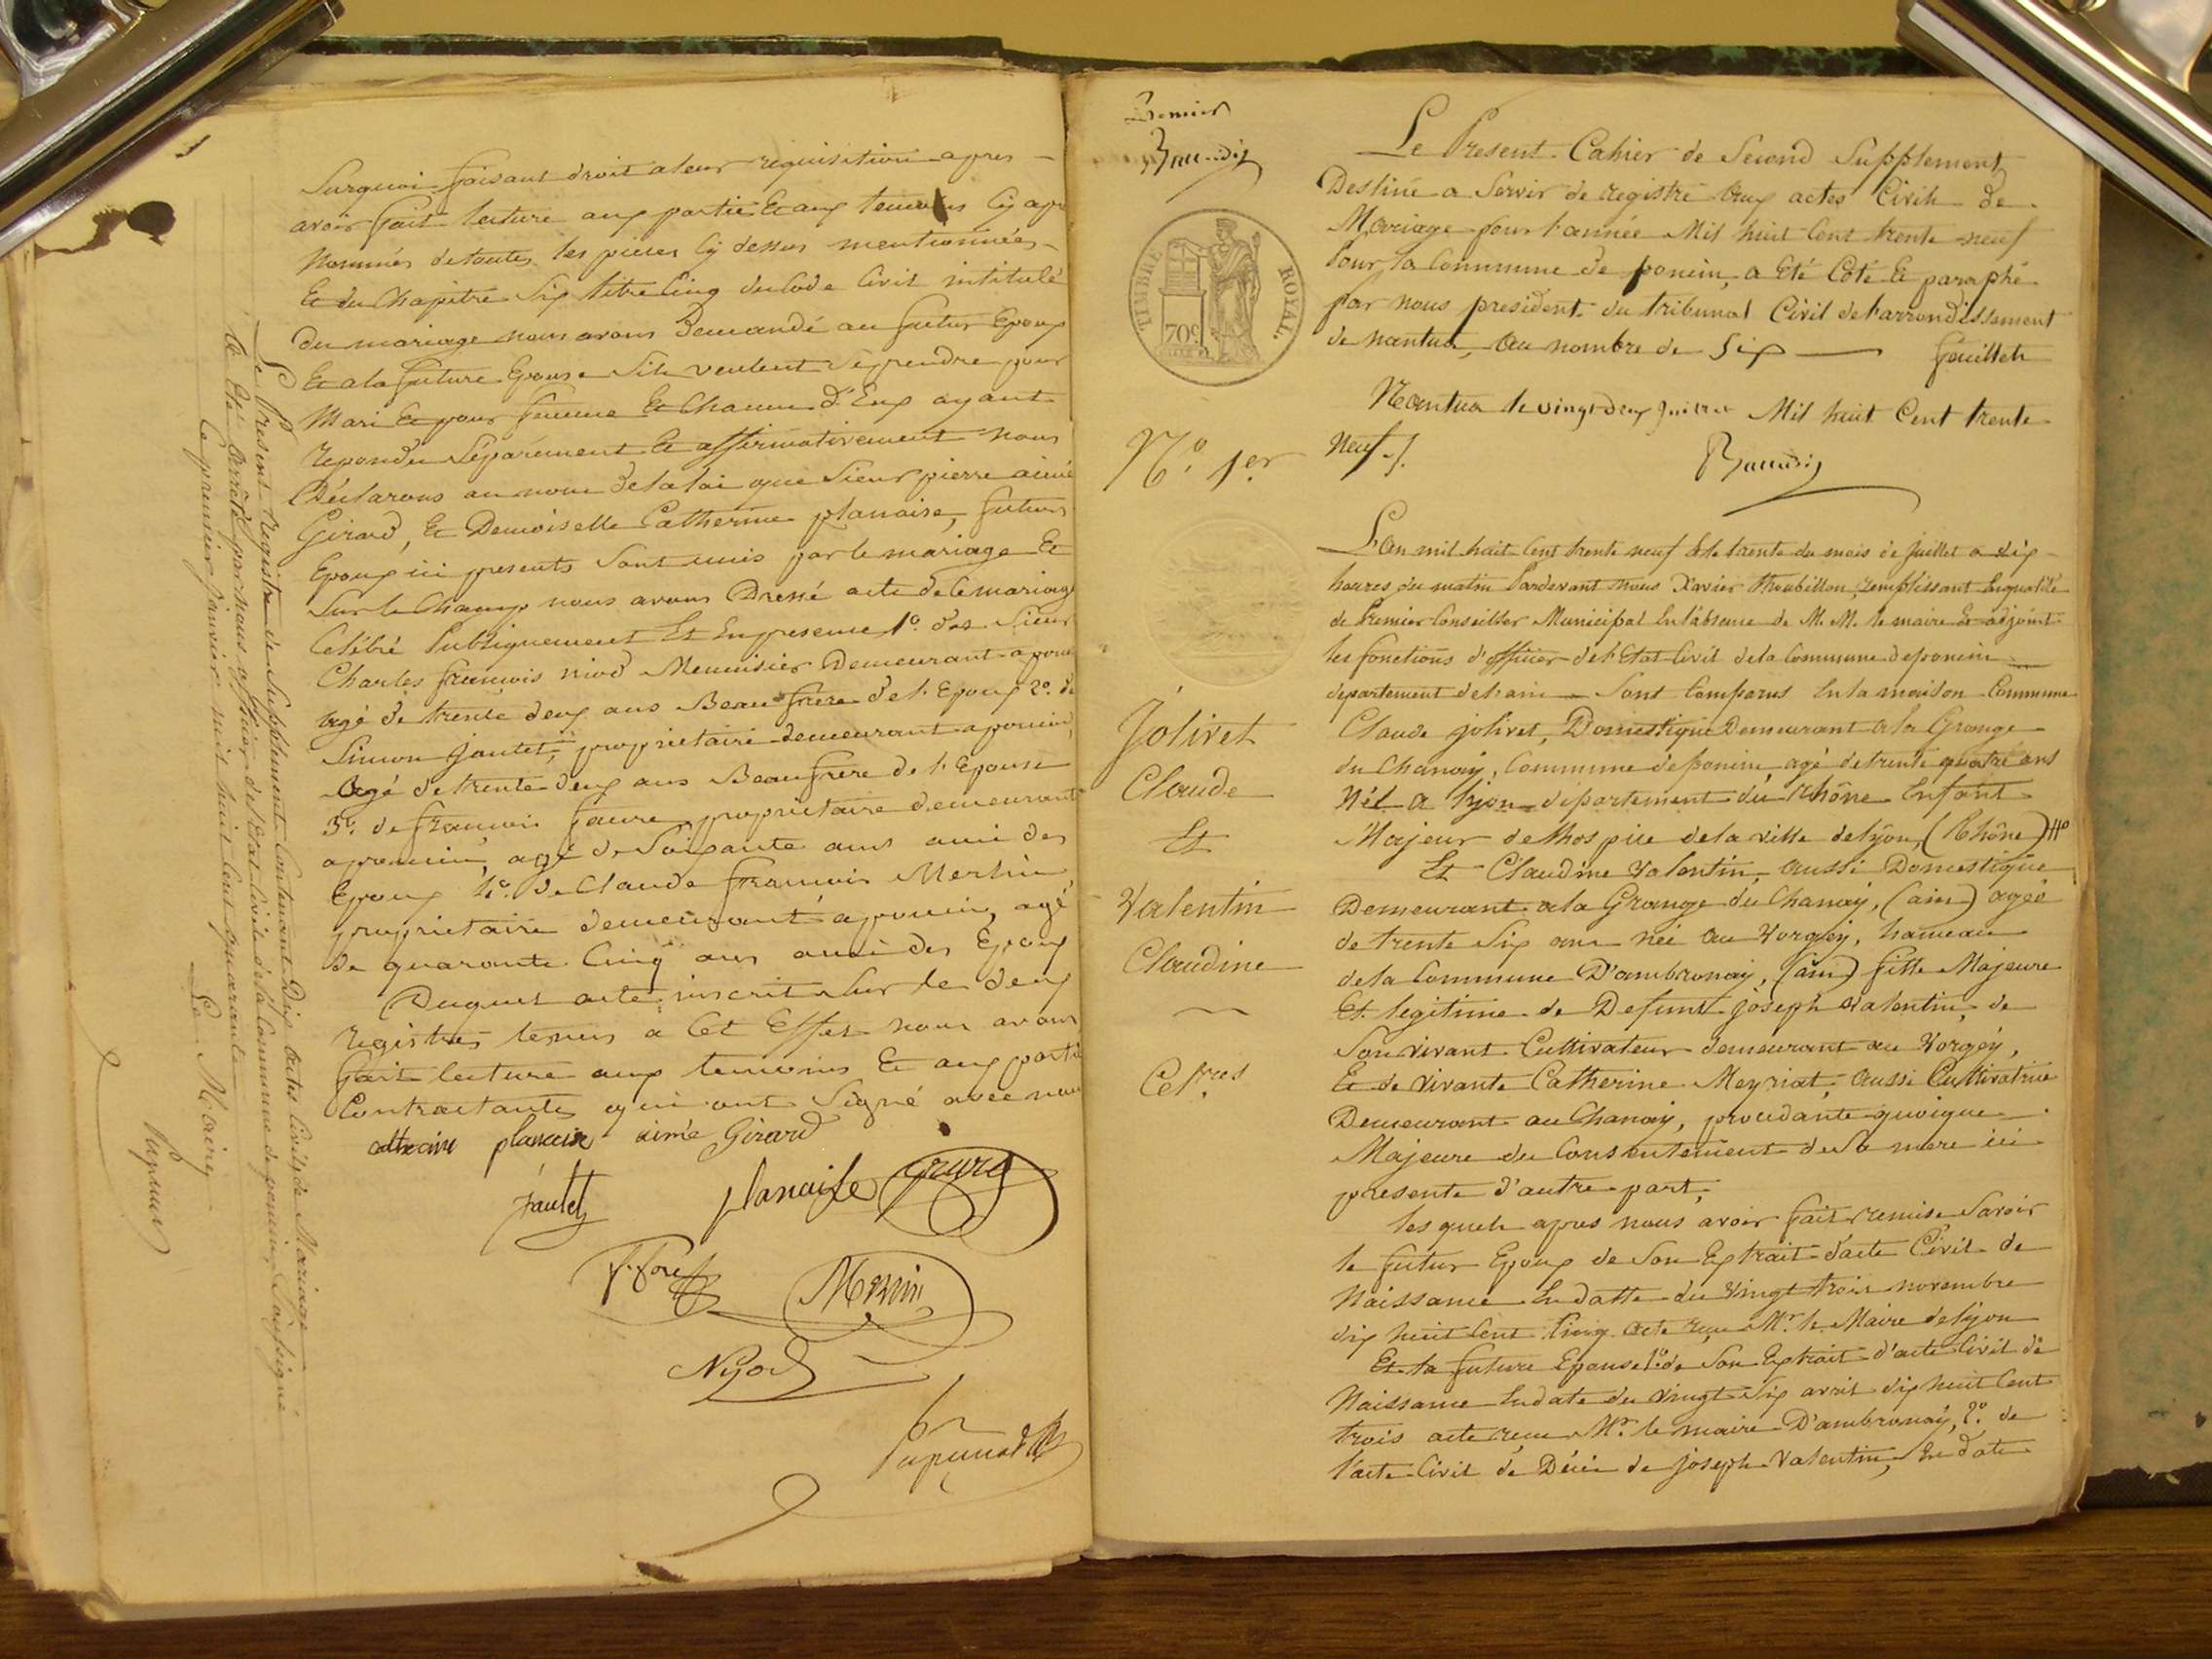 Surquoi faisant droit a leur requisition apres
avoir fait lecture aux partie & aux temoins cy apr
Nommés de toutes les pieces cy dessus mentionnées
Et du Chapitre Six titre Cinq du Code Civil intitulé
du mariage nous avons Demandé au futur Epoux
Et a la future Epouse Sils veulent Se prendre pour
Mari Et pour femme Et Chacun d'Eux ayant
repondu Séparément & affirmativement nous
Déclarons au nom de la loi que Sieur pierre aimé
Girard, Et Demoiselle Catherine planaise, futurs
Epoux ici presents Sont unis par le mariage Et
Sur le Champ nous avons Dressé acte de Ce mariage
Célébré Publiquement Et En presence 1º. des Sieur
Charles françois niod Menuisier Demeurant a poncin
agé de trente deux ans Beaufrère de l'Epoux 2º. de
Simon Jautet, proprietaire demeurant a poncin,
agé de trente deux ans Beaufrère de l'Epouse
3º. de françois faure, proprietaire demeurant
a poncin, agé de Soixante ans ami des
Epoux 4º. de Claude françois Merlin
proprietaire demeurant a poncin, agé
de quarante Cinq ans ami des Epoux
Duquel acte inscrit Sur les deux
registres tenus a Cet Effet nous avons
fait lecture aux temoins Et aux partie
Contractantes qui ont Signé avec nous
planaise aimé Girard
Jautet planaise
Niod
Le Present Registre de Supplement Contenant Dix actes Civils de Mariage
a Eté arrêté par nous officier de l'Etat Civil de la Commune de poncin, Soussigné
Ce premier Janvier mil huit Cent quarante
Le Maire
Premier
Le Present Cahier de Second Supplement
Destiné a Servir de registre aux actes Civils de
Mariage pour l'année Mil huit Cent trente neuf
Pour la Commune de poncin, a Eté Coté & paraphé
par nous président du tribunal Civil de l'arrondissement
de nantua, au nombre de Six feuillets
TIMBRE ROYAL.
70c
Nantua le vingt deux juillet Mil huit Cent trente
Neuf.
Nº. 1er
L'an mil huit Cent trente neuf & le trente du mois de Juillet a dix
heures du matin Pardevant nous Xavier Thoubillon, remplissant la qualité
de Premier Conseiller Municipal En l'absence de M. M. le maire & adjoint
les fonctions d'officier de l'Etat Civil de la Commune de poncin
département de l'ain Sont Comparus En la maison Commune
Claude jolivet, Domestique Demeurant a la Grange
du Chanay, Commune de poncin, agé de trente quatre ans
Né a lyon département du Rhône Enfant
Majeur de l'hospice de la ville de lyon, (Rhône)
Et Claudine Valentin, aussi Domestique
Demeurant a la Grange du Chanay, (ain) agée
de trente Six ans née au Vorgey, hameau
de la Commune D'ambronay, (ain) fille Majeure
Et legitime de Defunt joseph Valentin, de
Son vivant Cultivateur demeurant au Vorgey,
Et de vivante Catherine Meyriat, aussi Cultivatrice
Demeurant au Chanay, procedante quoique
Majeure du Consentement de Sa mere ici
presente d'autre part,
Jolivet
Claude
Et
Valentin
Claudine
Cel.res
lesquels apres nous avoir fait remise Savoir
le futur Epoux de Son Extrait d'acte Civil de
Naissance En datte du vingt trois novembre
dix huit Cent Cinq acte reçu Mr. le Maire de lyon
Et la future Epouse 1º. de Son Extrait d'acte Civil de
Naissance En date du vingt Six avril dix huit Cent
trois acte reçu Mr. le maire D'ambronay, 2º. de
l'acte Civil de Décès de joseph Valentin, En date